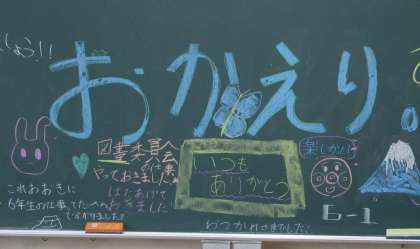 しょう!!
おかえり。
図書委員会
の仕事
やっておきました
はたあげて
おきました
いつも
ありがとう
楽しかった?
これおおきに
6年生の仕事
できかりました!
おつかれさまでした!
6-1